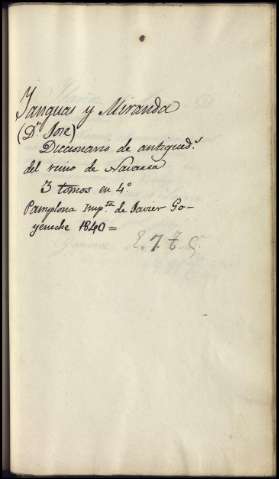 Yanguas y Miranda
(Dn José)
Diccionario de antigueds
del reino de Navarra
3 tomos en 4º
Pamplona impta de Javier Go-
yeneche 1840=
E. 7 t